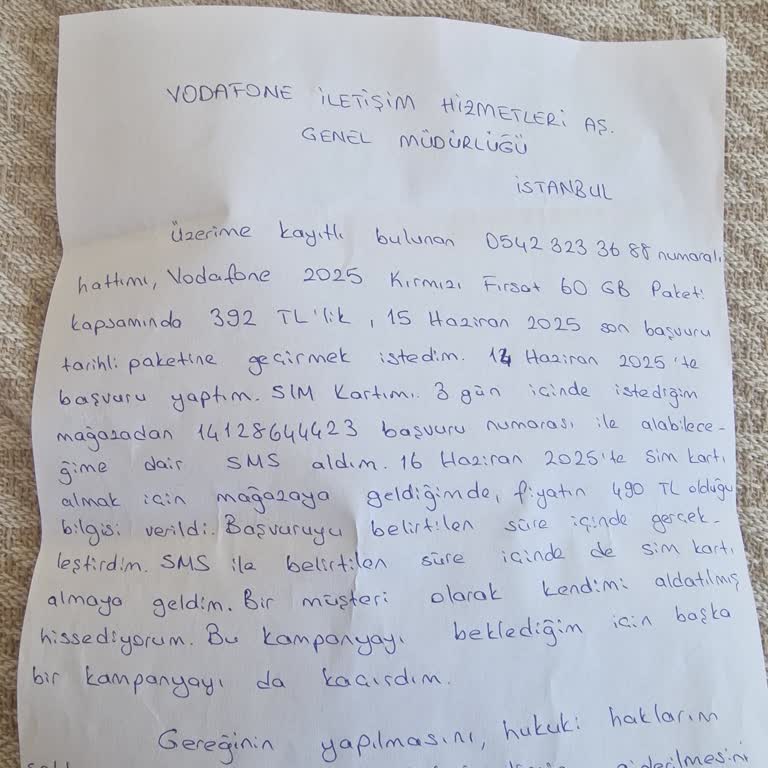 VODAFONE İLETİŞİM HİZMETLERİ AŞ.
GENEL MÜDÜRLÜĞÜ
İSTANBUL
Üzerime kayıtlı bulunan 0542 323 36 88 numaralı
hattımı, Vodafone 2025 Kırmızı Fırsat 60 GB Paketi
kapsamında 392 TL'lik, 15 Haziran 2025 son başvuru
tarihli paketine geçirmek istedim. 14 Haziran 2025'te
başvuru yaptım. SIM Kartımı 3 gün içinde istediğim
mağazadan 14128644423 başvuru numarası ile alabilece-
ğime dair SMS aldım. 16 Haziran 2025'te Sim kartı
almak için mağazaya geldiğimde, fiyatın 490 TL olduğu
bilgisi verildi. Başvuruyu belirtilen süre içinde gerçek-
leştirdim. SMS ile belirtilen süre içinde de sim kartı
almaya geldim. Bir müşteri olarak kendimi aldatılmış
hissediyorum. Bu kampanyayı beklediğim için başka
bir kampanyayı da kaçırdım.
Gereğinin yapılmasını, hukuki haklarım
giderilmesini